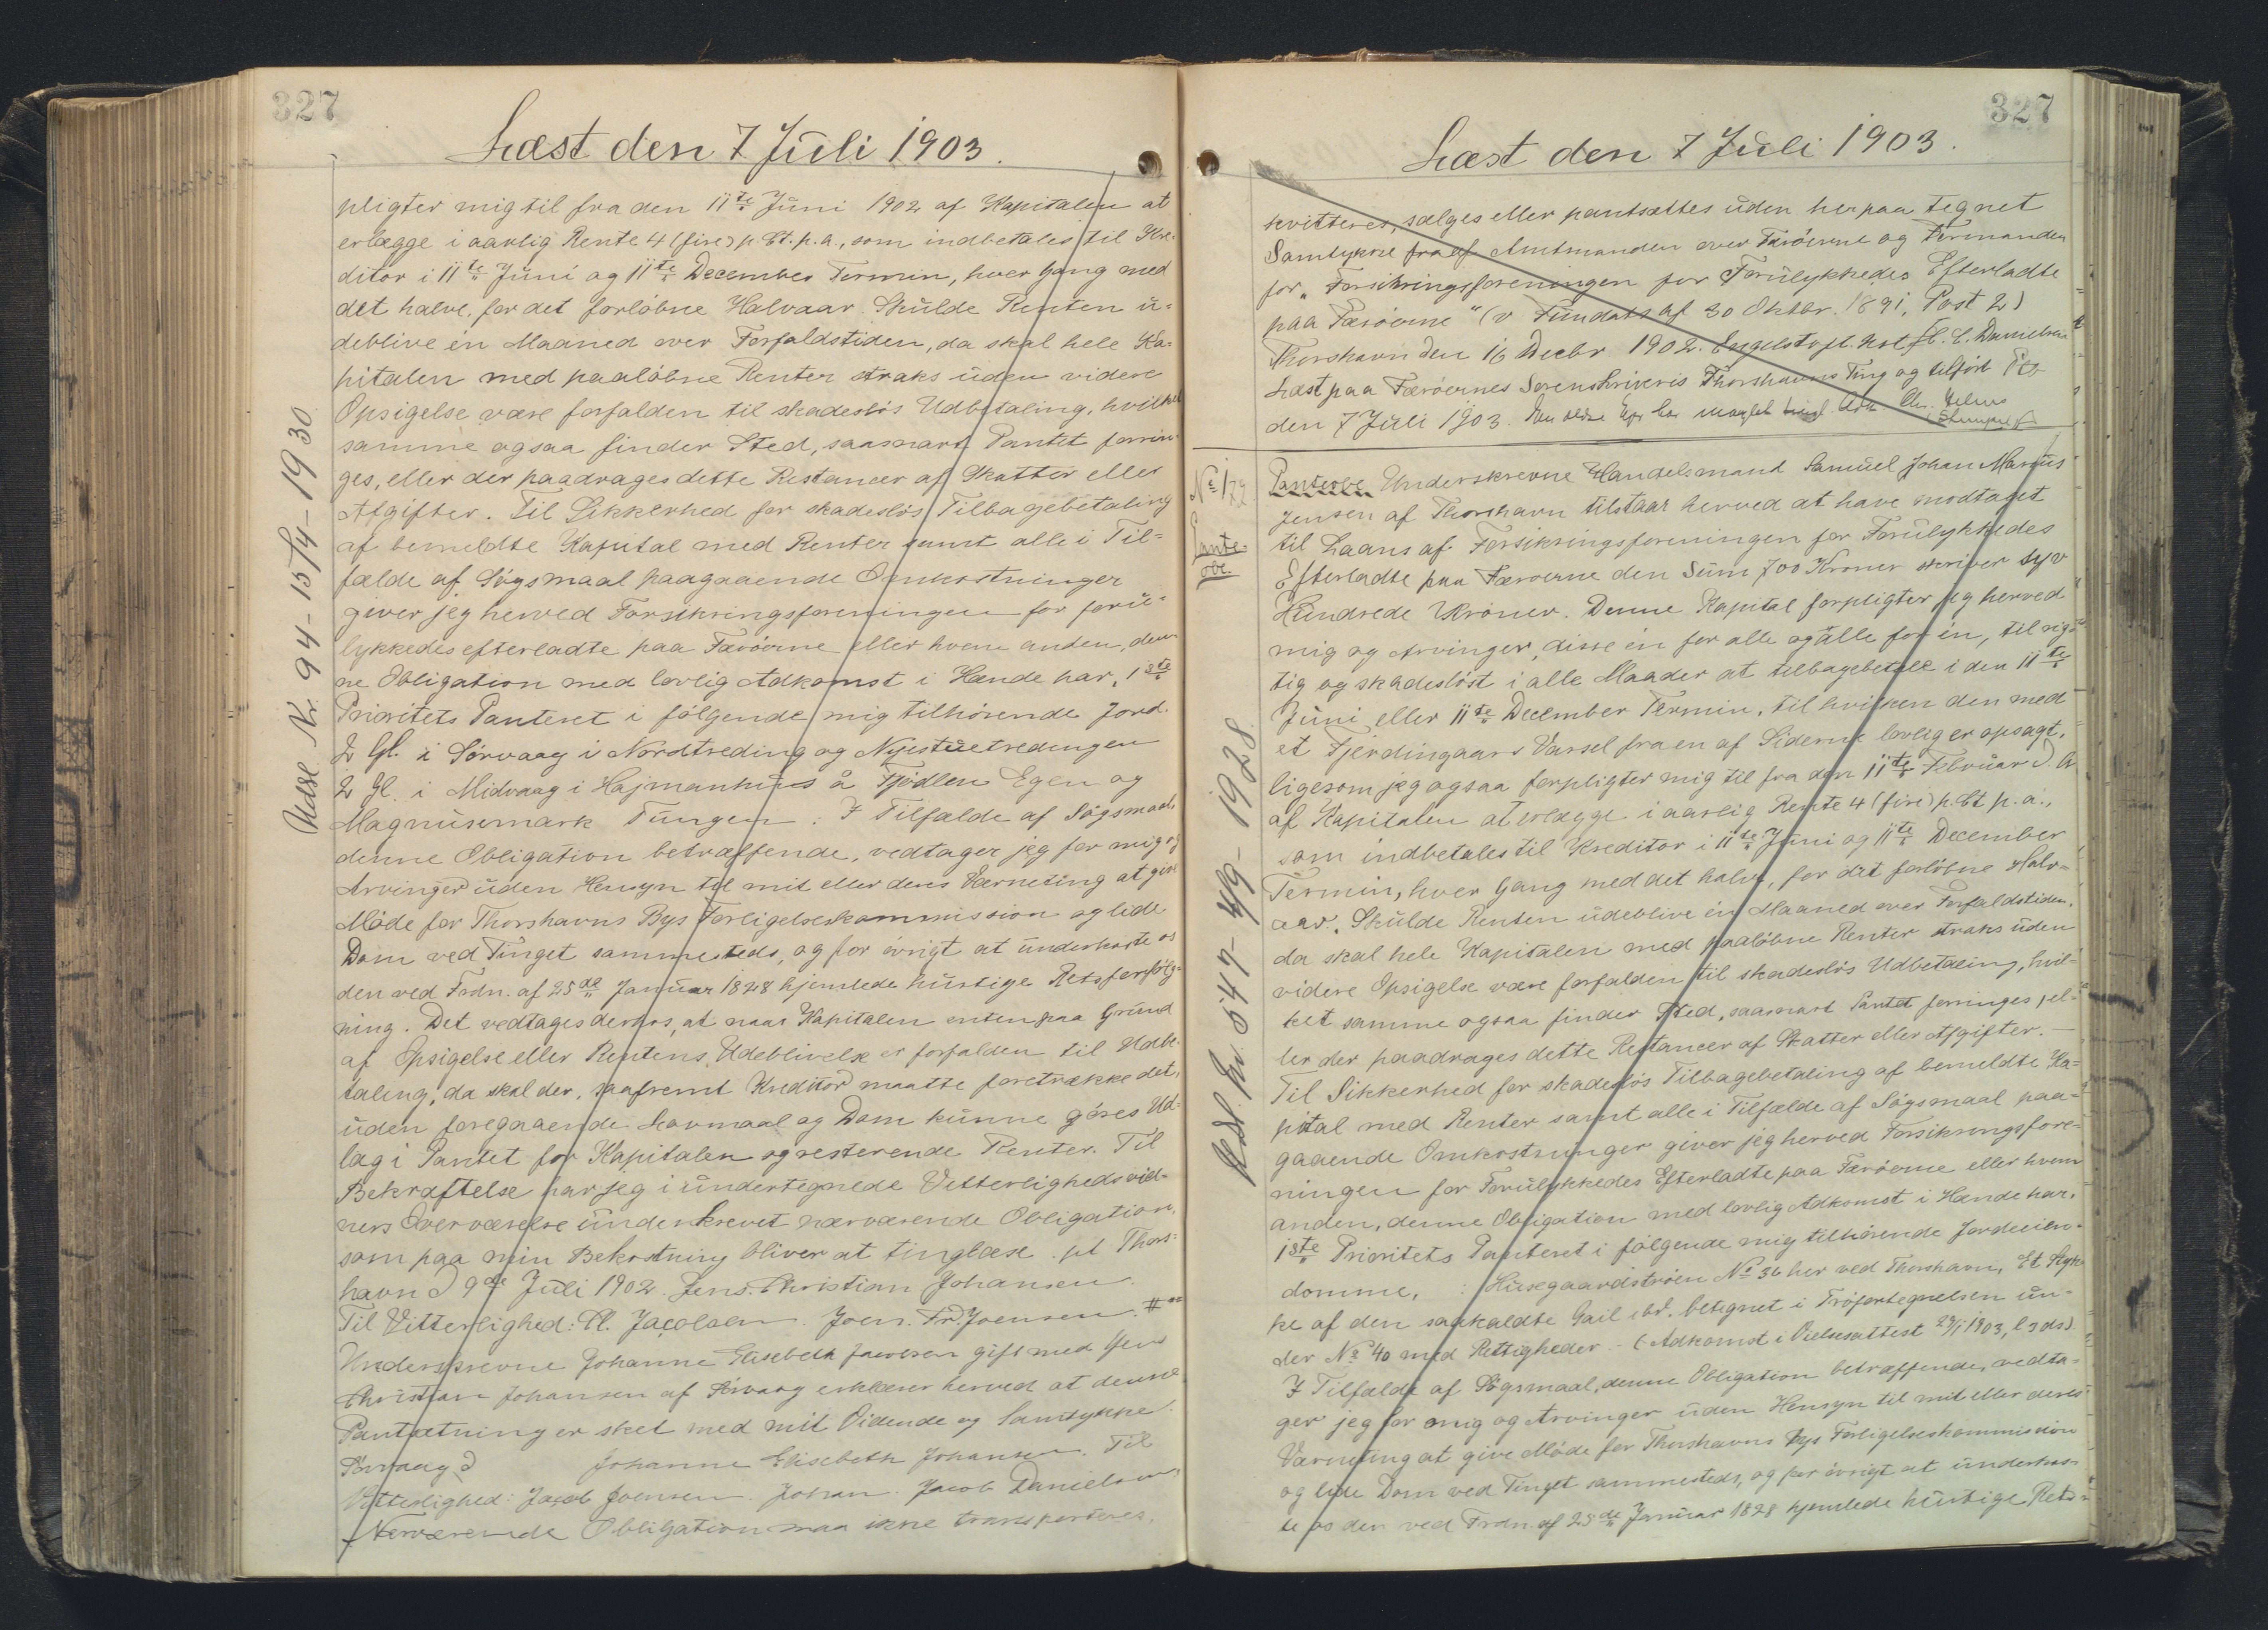 327
Læst den 7 Juli 1903.
pligter mig til fra den 11te Juni 1902 af Kapitalen at
erlægge i aarlig Rente 4 (fire) p. Ct. p. a., som indbetales til Kre-
ditor i 11te Juni og 11te December Termin, hver Gang med
det halve, for det forløbne Halvaar. Skulde Renten u-
deblive én Maaned over Forfaldstiden, da skal hele Ka-
pitalen med paaløbne Renter straks uden videre
Opsigelse være forfalden til skadesløs Udbetaling, hvilket
samme ogsaa finder Sted, saasnart Pantet forrin-
ges, eller der paadrages dette Restancer af Skatter eller
Afgifter. Til Sikkerhed for skadesløs Tilbagebetaling
af bemeldte Kapital med Renter samt alle i Til-
fælde af Søgsmaal paagaaende Omkostninger
giver jeg herved Forsikringsforeningen for foru-
lykkedes efterladte paa Færøerne eller hvem anden, den-
ne Obligation med lovlig Adkomst i Hænde har, 1ste
Prioritets Panteret i følgende mig tilhørende Jord.
2 Gl. i Sørvaag i Nordtreding og Nyestuetredingen
2 Gl. i Midvaag i Hajmanhus å Fjødlen Egen og
Magnusmark Tungen. I Tilfælde af Søgsmaal,
denne Obligation betræffende, vedtager jeg for mig og
Arvinger uden Hensyn til mit eller deres Værneting at give
Møde for Thorshavns Bys Forligelseskommission og lide
Dom ved Tinget sammesteds, og for øvrigt at underkaste os
den ved Frdn. af 25de Januar 1828 hjemlede hurtige Retsforfølg-
ning. Det vedtages derhos, at naar Kapitalen enten paa Grund
af Opsigelse eller Rentens Udeblivelse er forfalden til Udbe-
taling, da skal der, saafremt Kreditor maatte foretrække det,
uden foregaaende Lovmaal og Dom kunne gøres Ud-
læg i Pantet for Kapitalen og resterende Renter. Til
Bekræftelse har jeg i undertegnede Vitterligheds vid-
ners Overværelse underskrevet nærværende Obligation,
som paa min Bekostning bliver at tinglæse. pt Thors-
havn d 9de Juli 1902. Jens. Christian Johansen.
Til Vitterlighed: Pl. Jacobsen. Joen. Fr. Joensen.
Underskrevne Johanne Elisebeth Jacobsen gift med Jens
Christian Johansen af Sørvaag erklærer herved at denne
Pantsætning er sket med mit Vidende og Samtykke.
Sørvaag d Johanne Elisebeth Johansen. Til
Vitterlighed: Jacob Joensen. Johan. Jacob Danielsen,
Nærværende Obligation maa ikke transporteres,
Udsl. Nr. 94 - 15/4 - 1930
327
Læst den 7 Juli 1903.
kvitteres, sælges eller pantsættes uden herpaa tegnet
Samtykke fra af Amtmanden over Færøerne og Formanden
for "Forsikringsforeningen for Forulykkedes Efterladte
paa Færøerne" (v Fundats af 30 Oktbr. 1891, Post 2)
Thorshavn den 16 Decbr 1902. Engelstoft. kst. C. C. Danielsen
Læst paa Færøernes Sorenskriveris Thorshavns Ting og tilført
den 7 Juli 1903.
No 172
Pante-
obl.
Panteobl. Underskrevne Handelsmand Samuel Johan Marius
Jensen af Thorshavn tilstaar herved at have modtaget
til Laans af Forsikringsforeningen for Forulykkedes
Efterladte paa Færøerne den Sum 700 Kroner skriver syv
Hundrede Kroner. Denne Kapital forpligter jeg herved
mig og Arvinger, disse én for alle og alle for én, til rig-
tig og skadesløst i alle Maader at tilbagebetale i den 11te
Juni eller 11te December Termin, til hvilken den med
et Fjerdingaars Varsel fra en af Siderne lovlig er opsagt,
ligesom jeg ogsaa forpligter mig til fra den 11te Februar D. A
af Kapitalen at erlægge i aarlig Rente 4 (fire) p. Ct p. a.,
som indbetales til Kreditor i 11te Juni og 11te December
Termin, hver Gang med det halve, for det forløbne Halv-
aar. Skulde Renten udeblive én Maaned over Forfaldstiden,
da skal hele Kapitalen med paaløbne Renter straks uden
videre Opsigelse være forfalden til skadesløs Udbetaling, hvil-
ket samme ogsaa finder Sted, saasnart Pantet forringes, el-
ler der paadrages dette Restancer af Skatter eller Afgifter.
Til Sikkerhed for skadesløs Tilbagebetaling af bemeldte Ka-
pital med Renter samt alle i Tilfælde af Søgsmaal paa-
gaaende Omkostninger giver jeg herved Forsikringsfore-
ningen for Forulykkedes Efterladte paa Færøerne eller hvem
anden, denne Obligation med lovlig Adkomst i Hænde har,
1ste Prioritets Panteret i følgende mig tilhørende Jordeien-
domme, : Husegaardstrøen No 36 her ved Thorshavn, Et Styk-
ke af den saakaldte Gail ibd. betegnet i Trøfortegnelsen un-
der No 40 med Rettigheder - (Adkomst i Vielsesattest 29/1 1903, l 3 ds).
I Tilfælde af Søgsmaal, denne Obligation betræffende, vedta-
ger jeg for mig og Arvinger uden Hensyn til mit eller deres
Værneting at give Møde for Thorshavns Bys Forligelseskommission
og lide Dom ved Tinget sammesteds, og for øvrigt at underkas-
te os den ved Frdn. af 25de Januar 1828 hjemlede hurtige Rets-
Udsl. Nr. 547 - 4/9 - 1928.